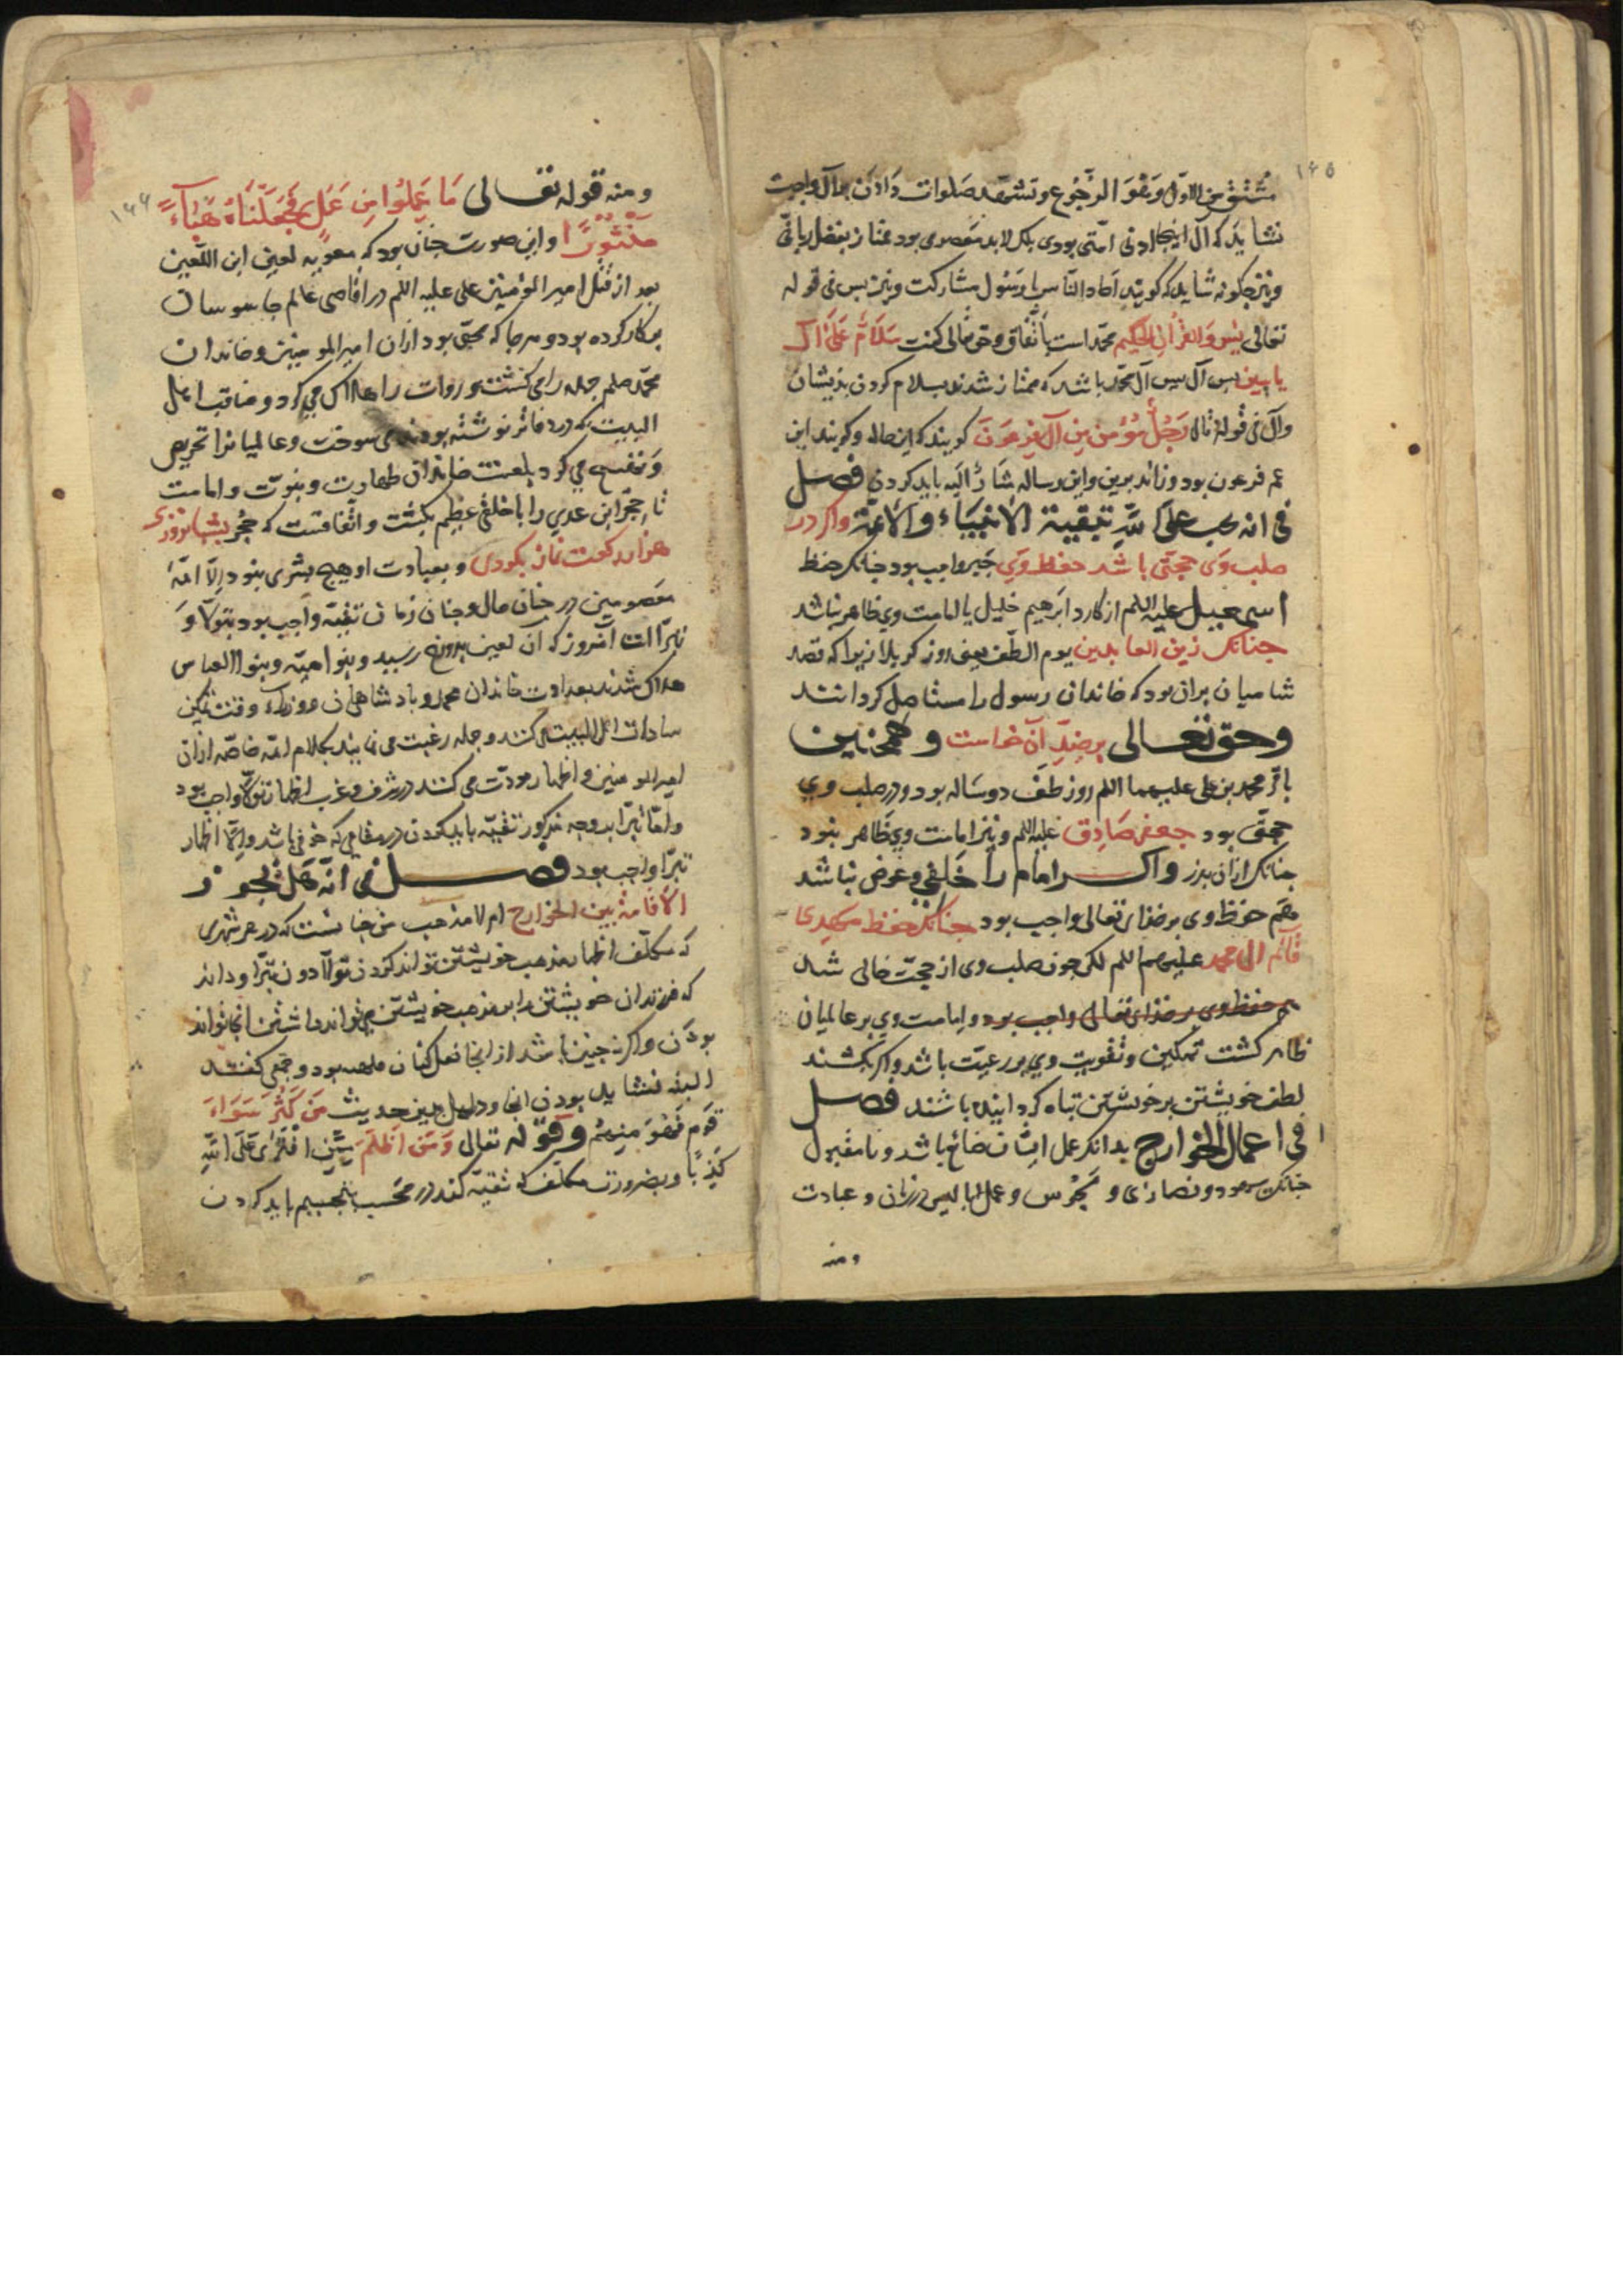 ۱۴۵
مشتق من الاول وهو الرجوع و تشهد صلوات دادن بر آل واجبست
نشاید که آل اینجا ادنی امتی بودی بلک لابد معصومی بود ممتاز بفضل ربانی
و نیز چکونه شاید که کویند آحاد الناس با رسول مشارکت و نیز یس فی قوله
تعالی یس والقرآن الحکیم محمد است باتفاق و حق تعالی کفت سلام علی آل
یاسین پس آل یس آل محمد باشد که ممتاز شدند بسلام کردن بذیشان
وآل فی قوله تعالی رجل مؤمن من آل فرعون کویند که ابن خاله و کویند ابن
عم فرعون بود و زاند برین و این رساله مشار الیه باید کردن فصل
فی انه یجب علی الله تبقیة الأنبیاء والأئمة واکر در
صلب وی حجتی باشد حفظ وی جبر واجب بود چنانکه حفظ
اسمعیل علیه السلم از کارد ابرهیم خلیل یا امامت وی ظاهر نباشد
چنانک زین العابدین یوم الطف یعنی روز کربلا زیرا که قصد
شامیان بران بود که خاندان رسول را مستاصل کردانند
وحق تعالی بر ضد آن خواست و همچنین
باقر محمد بن علی علیهما السلم روز طف دوساله بود و در صلب وی
حجتی بود جعفر صادق علیه السلم و نیز امامت وی ظاهر نبود
چنانک ازان پدر واکر امام را خلفی و عوض نباشد
هم حفظ وی بر خدای تعالی واجب بود چنانک حفظ مهدی
قائم آل محمد علیهم السلم لکن چون صلب وی از حجت خالی شد
هم حفظ وی بر خدای تعالی واجب بود و امامت وی بر عالمیان
ظاهر کشت تمکین و تقویت وی بر رعیت باشد واکر بکشند
لطف خویشتن بر خویشتن تباه کردانیده باشند فصل
فی اعمال الخوارج بدانک عمل ایشان ضائع باشد و نامقبول
چنانک یهود و نصاری و مجوس و عمل ابالیس در زنان و عبادت
ومنه
۱۴۶
ومنه قوله تعالی ما عملوا من عمل فجعلناه هباءً
منثوراً و این صورت چنان بود که معویه لعین ابن اللعین
بعد از قتل امیر المؤمنین علی علیه السلم در اقاصی عالم جاسوسان
بر کار کرده بود و هر جا که محبی بود ازان امیر المومنین و خاندان
محمد صلعم جمله را می کشت و روات را هلاک می کرد و مناقب اهل
البیت که در دفاتر نوشته بودند می سوخت و عالمیانرا تحریص
می کرد بلعنت خاندان طهارت و نبوت و امامت
تا حجر ابن عدی را با خلقی عظیم بکشت و اتفاقست که حجر بشبانروزی
هزار رکعت نماز بکردی و بعبادت او هیچ بشری نبود الا ائمه
معصومین در چنان حال و چنان زمان تقیه واجب بود بتولا و
تبرا اما امروز که ان لعین بدوزخ رسید و بنو امیه و بنو العباس
هلاک شدند بعداوت خاندان محمد و بادشاهان و وزراء وقت تمکین
سادات اهل البیت می کنند و جمله رغبت می نمایند بکلام ائمه خاصه ازان
امیر المومنین و اظهار مودت می کنند در شرق و غرب اظهار تولا واجب بود
واما تبرا بدوجه مذکور تقیه باید کردن در مقامی که خوفی باشد والا اظهار
تبرا واجب بود فصل فی انه هل یجوز
الاقامة بین الخوارج ام لا مذهب من چنانست که در هر شهری
که مکلف اظهار مذهب خویشتن تواند کردن تولا دون تبرا و داند
که فرزندان خویشتن را بر مذهب خویشتن می تواند داشتن انجا تواند
بودن واکر نه چنین باشد از انجا نقل کنان ملهب بود و جمعی کفتند
البته نشاید بودن انجا و دلیل برین حدیث من کثر سواد
قوم فهو منهم وقوله تعالی ومن اظلم ممن افتری علی الله
کذباً و بضرورت مکلف که تقیه کند در محسب باید کردن